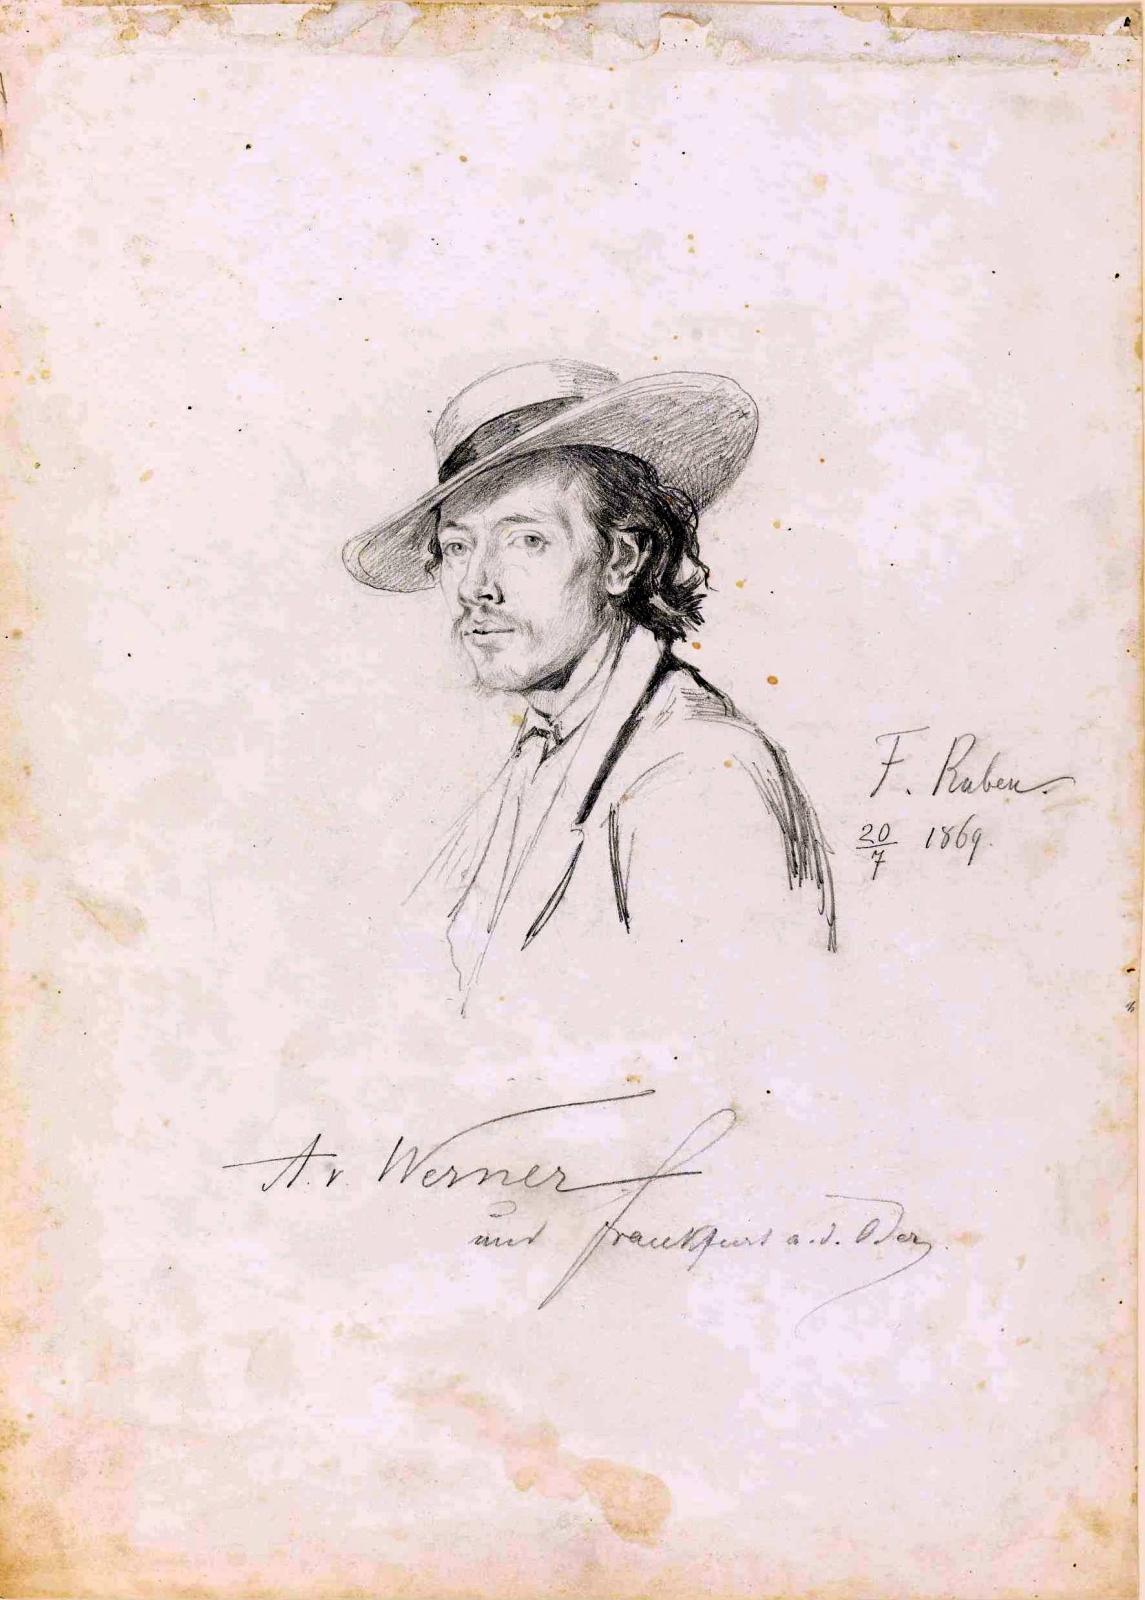 F. Ruben.
20/7 1869.
A. v. Werner
und Frankfurt a. d. Oder